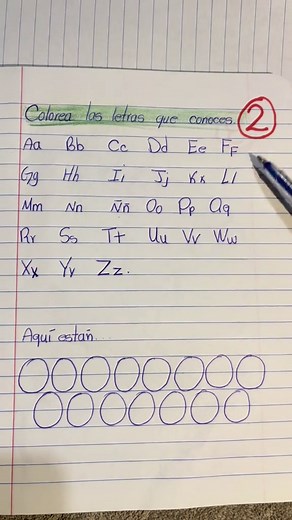 Colorea las letras que conoces. 2
Aa Bb Cc Dd Ee Ff
Gg Hh Ii Jj Kk Ll
Mm Nn Ññ Oo Pp Qq
Rr Ss Tt Uu Vv Ww
Xx Yy Zz.
Aquí están...